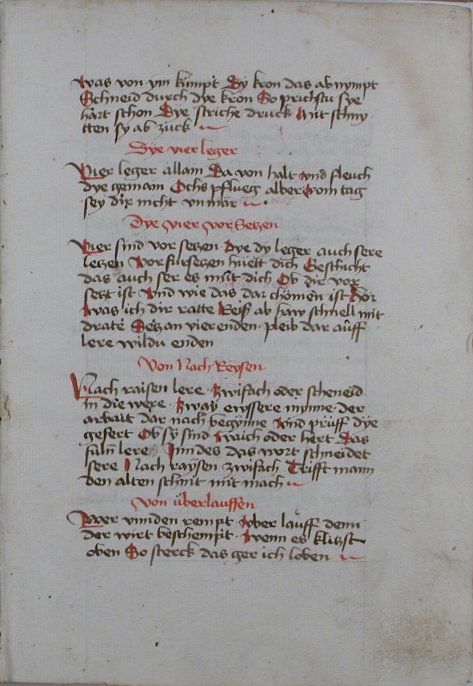 was von ym kumpt Dy kron das abnympt
Schneid durch dye kron So prichstu sye
hart schon Dye striche druck Mit schny
tten sy ab zuck
Dye vier leger
Vier leger allain Da von halt und fleuch
dye gemain Ochs pflueg alber vom tag
sey dir nicht unmär
Dye vier vor setzen
Vier sind vor setzen Dye dy leger auch sere
letzen Vor fursetzen huett dich Geschicht
das auch ser es muet dich Ob dir vor
setzt ist Und wie das dar chomen ist Hör
Was ich dir ratte Reiß ab haw schnell mit
dratte Setz an vier enden pleib dar auff
lere wildu enden
Von Nach Reysen
Nach raisen lere Zwifach oder schneid
in die were Zway eussere mynne der
arbait dar nach begynne Und prüff dye
gefert Ob sy sind waich oder hert Das
fuln lere Inndes das wort schneidet
sere Nach raysen zwifach Trifft mann
den alten schnit mit mach
Von überlauffen
Wer unnden rempt Uber lauff denn
der wirt beschempt Wenn es klitzt
oben So sterck das ger ich loben